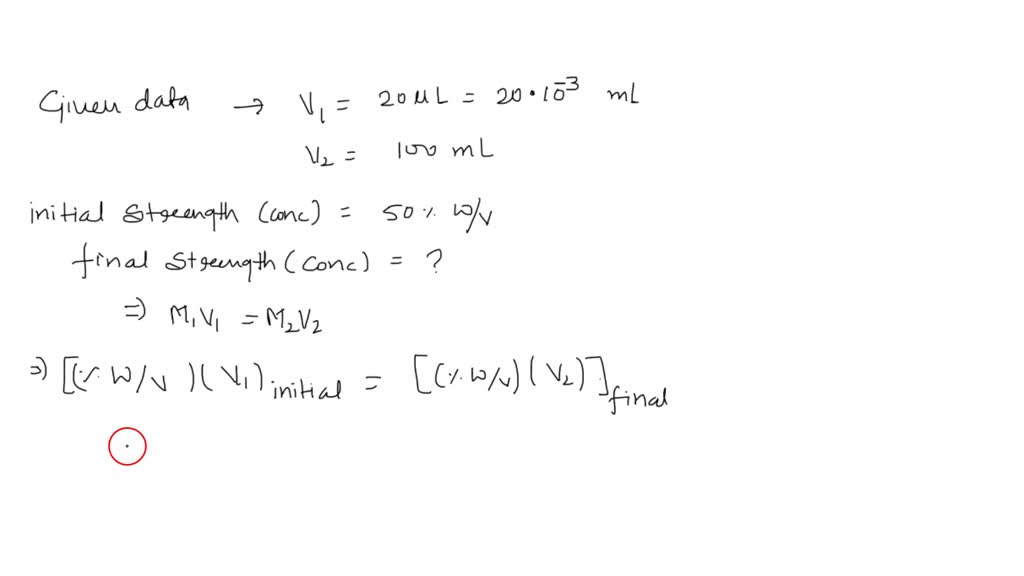 Given data → V₁ = 20 μL = 20·10⁻³ mL
V₂ = 100 mL
initial strength (conc) = 50 % W/V
final strength (conc) = ?
⇒ M₁V₁ = M₂V₂
⇒ [(% W/V)(V₁)initial = [(% W/V)(V₂)]final